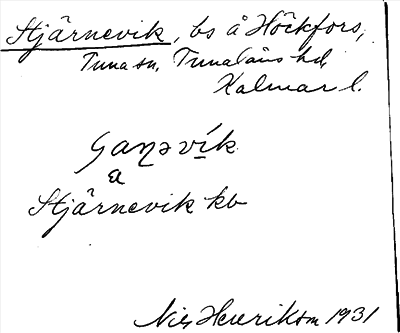 Stjärnevik, bs å Höckfors,
Tuna sn, Tunaläns hd,
Kalmar l.
Ϛaƞəvík
a
Stjärnevik kb
Nils Henrikson 1931